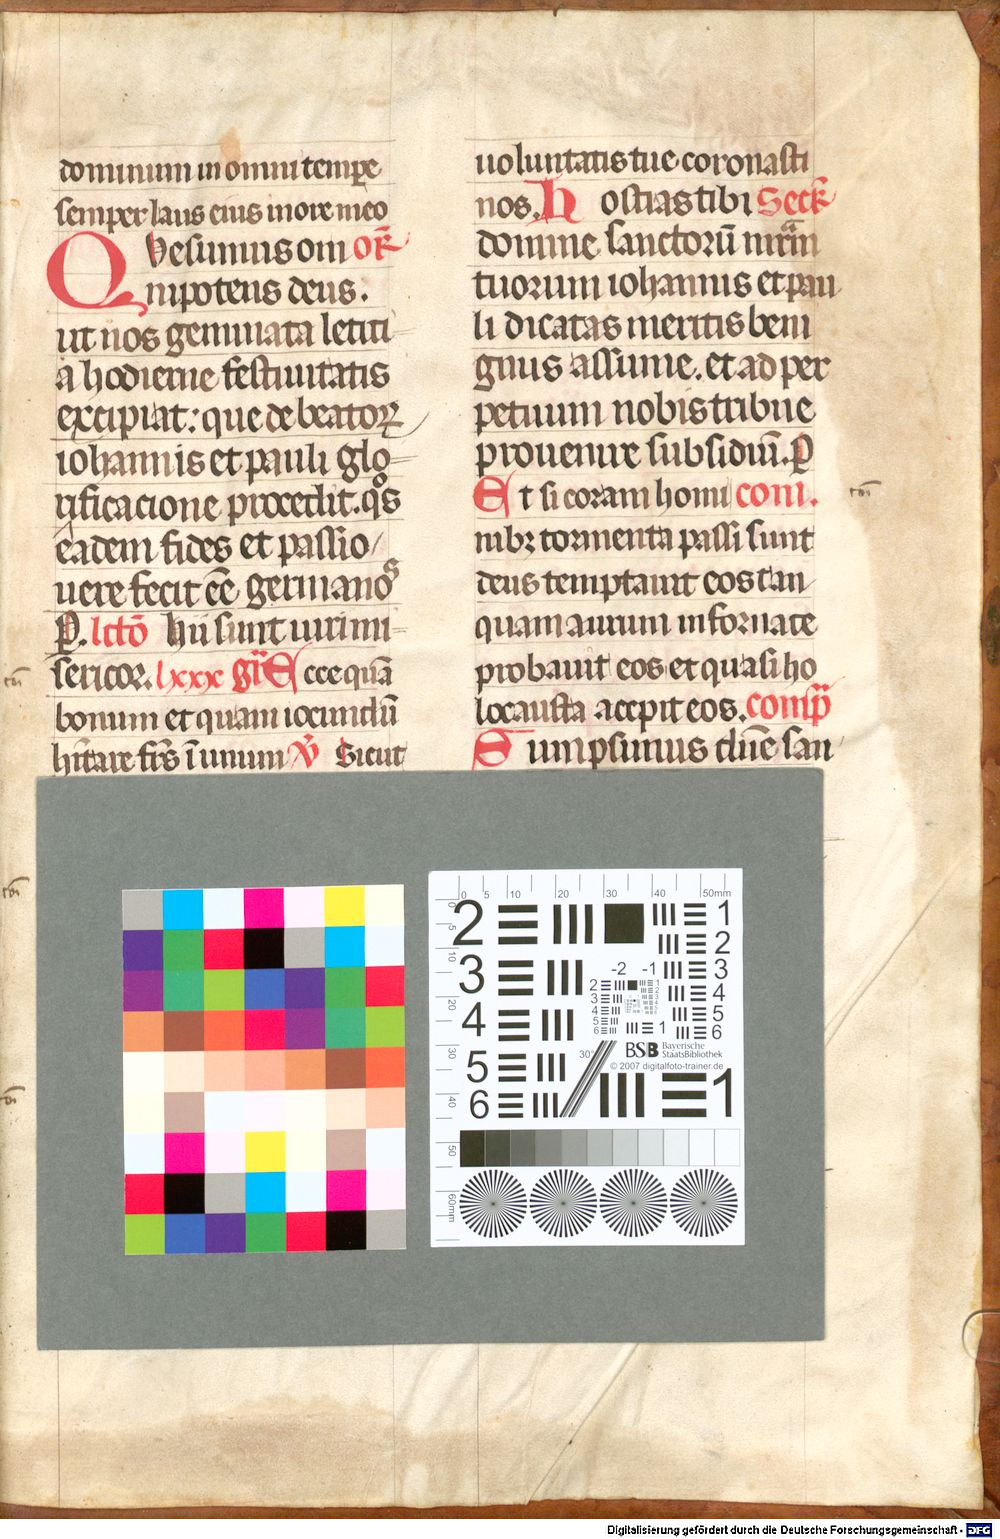 dominum in omni tempꝛe
semper laus eius in ore meo
Qvesumus om or̄
nipotens deus.
ut nos geminata leticı
a hodierne festiuitatis
excipiat: que de beatoꝝ
iohannis et pauli glo
rificacione procedit. qͦs
eadem fides et passio
uere fecit eē germanoˢ
P̄. lctō hii sunt uiri mi
sericor. lxxx gͬ Ecce quā
bonum et quam iocundū
hītare frēs ī unum v̄ Sicut
uoluntatis tue coronasti
nos. Hostias tibi Secr̄
domine sanctorū mrͣm
tuorum iohannis et pau
li dicatas meritis beni
gnus assume. et ad per
petuum nobis tribue
prouenire subsidiū. P̄
Et si coram homi com̄.
nibꝫ tormenta passi sunt
deus temptauit eos tan
quam aurum in fornace
probauit eos et quasi ho
locausta accepit eos. comp̄
Sumpsimus dn̄e san
0 5 10 20 30 40 50mm
2 1
2
3 -2 -1 3
4 4
5
6
5 30° BSB Bayerische
StaatsBibliothek
© 2007 digitalfoto-trainer.de
6 1
0 5 10 20 30 40 50 60mm
Digitalisierung gefördert durch die Deutsche Forschungsgemeinschaft - DFG